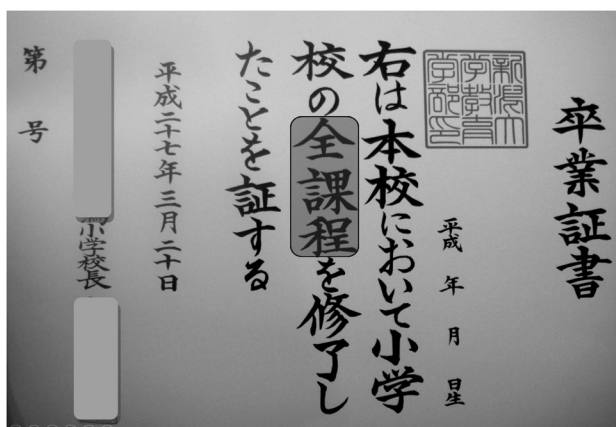 卒業証書
平成　年　月　日生
右は本校において小学
校の全課程を修了し
たことを証する
平成二十七年三月二十日
小学校長
第　号